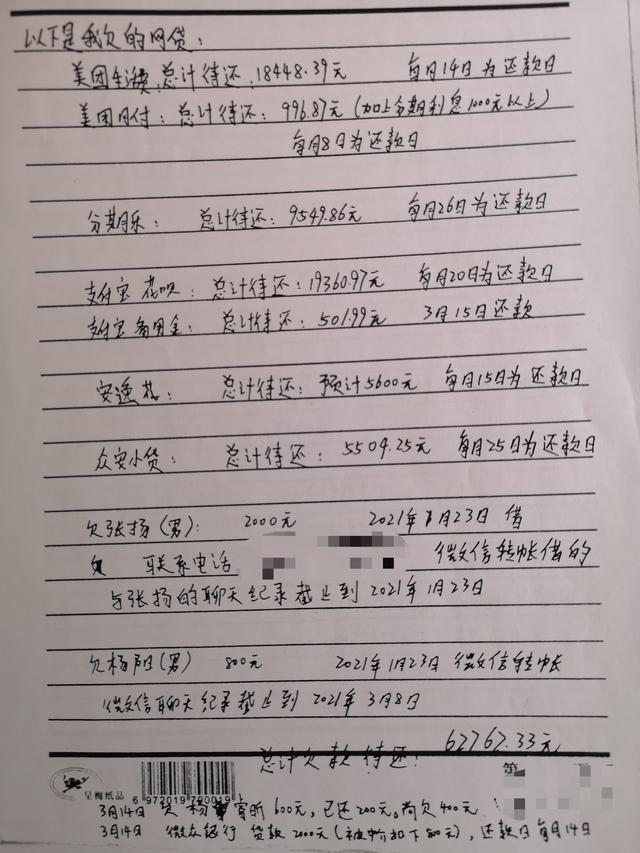 以下是我欠的网贷：
美团生活费：总计待还：18448.39元 每月14日为还款日
美团月付：总计待还：996.87元（加上分期利息1000元以上）
每月8日为还款日
分期乐：总计待还：9549.86元 每月26日为还款日
支付宝花呗：总计待还：19360.97元 每月20日为还款日
支付宝备用金：总计待还：501.99元 3月15日还款
安逸花：总计待还：预计5600元 每月15日为还款日
众安小贷：总计待还：5504.25元 每月25日为还款日
欠张扬（男）：2000元 2021年1月23日借
联系电话 微信转帐借的
与张扬的聊天纪录截止到2021年1月23日
欠杨阳（男） 800元 2021年1月23日 微信转帐
微信聊天纪录截止到2021年3月8日
总计欠款待还：62762.33元
呈梅纸品 6 972019 790019 第
3月14日 欠杨 600元，已还200元，尚欠400元
3月14日 微众银行 贷款2000元（被扣下800元），还款日每月14日